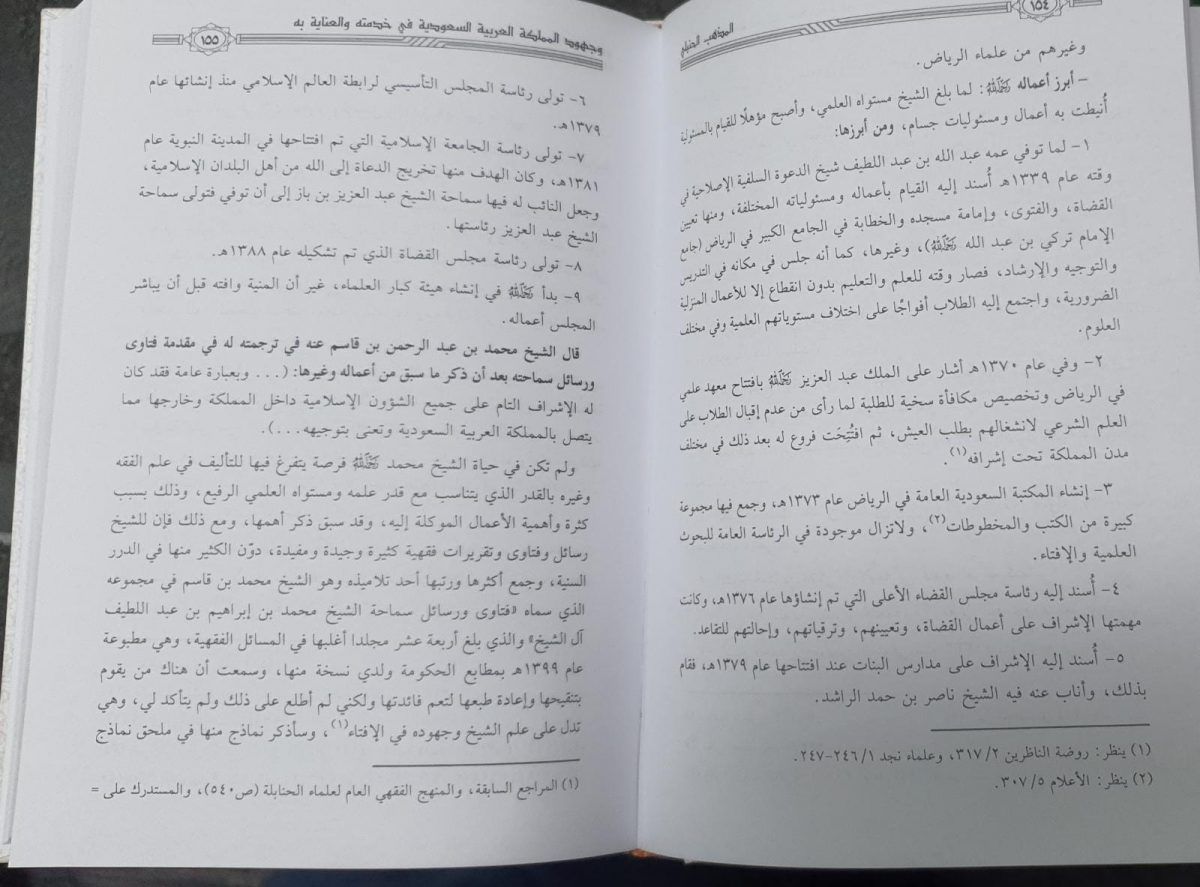 ١٥٤
المذهب الحنبلي
وغيرهم من علماء الرياض.
– أبرز أعماله رحمه الله: لما بلغ الشيخ مستواه العلمي، وأصبح مؤهلًا للقيام بالمسئولية
أُنيطت به أعمال ومسئوليات جسام، ومن أبرزها:
١– لما توفي عمه عبد الله بن عبد اللطيف شيخ الدعوة السلفية الإصلاحية في
وقته عام ١٣٣٩هـ أُسند إليه القيام بأعماله ومسئولياته المختلفة، ومنها تعيين
القضاة، والفتوى، وإمامة مسجده والخطابة في الجامع الكبير في الرياض (جامع
الإمام تركي بن عبد الله رحمه الله)، وغيرها، كما أنه جلس في مكانه في التدريس
والتوجيه والإرشاد، فصار وقته للعلم والتعليم بدون انقطاع إلا للأعمال المنزلية
الضرورية، واجتمع إليه الطلاب أفواجًا على اختلاف مستوياتهم العلمية وفي مختلف
العلوم.
٢– وفي عام ١٣٧٠هـ أشار على الملك عبد العزيز رحمه الله بافتتاح معهد علمي
في الرياض وتخصيص مكافأة سخية للطلبة لما رأى من عدم إقبال الطلاب على
العلم الشرعي لانشغالهم بطلب العيش، ثم افتُتِحَت فروع له بعد ذلك في مختلف
مدن المملكة تحت إشرافه(١).
٣– إنشاء المكتبة السعودية العامة في الرياض عام ١٣٧٣هـ، وجمع فيها مجموعة
كبيرة من الكتب والمخطوطات(٢)، ولاتزال موجودة في الرئاسة العامة للبحوث
العلمية والإفتاء.
٤– أُسند إليه رئاسة مجلس القضاء الأعلى التي تم إنشاؤها عام ١٣٧٦هـ، وكانت
مهمتها الإشراف على أعمال القضاة، وتعيينهم، وترقياتهم، وإحالتهم للتقاعد.
٥– أُسند إليه الإشراف على مدارس البنات عند افتتاحها عام ١٣٧٩هـ، فقام
بذلك، وأناب عنه فيه الشيخ ناصر بن حمد الراشد.
(١) ينظر: روضة الناظرين ٢/ ٣١٧، وعلماء نجد ١/ ٢٤٦–٢٤٧.
(٢) ينظر: الأعلام ٥/ ٣٠٧.
وجهود المملكة العربية السعودية في خدمته والعناية به
١٥٥
٦– تولى رئاسة المجلس التأسيسي لرابطة العالم الإسلامي منذ إنشائها عام
١٣٧٩هـ.
٧– تولى رئاسة الجامعة الإسلامية التي تم افتتاحها في المدينة النبوية عام
١٣٨١هـ، وكان الهدف منها تخريج الدعاة إلى الله من أهل البلدان الإسلامية،
وجعل النائب له فيها سماحة الشيخ عبد العزيز بن باز إلى أن توفي فتولى سماحة
الشيخ عبد العزيز رئاستها.
٨– تولى رئاسة مجلس القضاة الذي تم تشكيله عام ١٣٨٨هـ.
٩– بدأ رحمه الله في إنشاء هيئة كبار العلماء، غير أن المنية وافته قبل أن يباشر
المجلس أعماله.
قال الشيخ محمد بن عبد الرحمن بن قاسم عنه في ترجمته له في مقدمة فتاوى
ورسائل سماحته بعد أن ذكر ما سبق من أعماله وغيرها: (... وبعبارة عامة فقد كان
له الإشراف التام على جميع الشؤون الإسلامية داخل المملكة وخارجها مما
يتصل بالمملكة العربية السعودية وتعنى بتوجيهه...).
ولم تكن في حياة الشيخ محمد رحمه الله فرصة يتفرغ فيها للتأليف في علم الفقه
وغيره بالقدر الذي يتناسب مع قدر علمه ومستواه العلمي الرفيع، وذلك بسبب
كثرة وأهمية الأعمال الموكلة إليه، وقد سبق ذكر أهمها، ومع ذلك فإن للشيخ
رسائل وفتاوى وتقريرات فقهية كثيرة وجيدة ومفيدة، دوّن الكثير منها في الدرر
السنية، وجمع أكثرها ورتبها أحد تلاميذه وهو الشيخ محمد بن قاسم في مجموعه
الذي سماه «فتاوى ورسائل سماحة الشيخ محمد بن إبراهيم بن عبد اللطيف
آل الشيخ» والذي بلغ أربعة عشر مجلدا أغلبها في المسائل الفقهية، وهي مطبوعة
عام ١٣٩٩هـ بمطابع الحكومة ولدي نسخة منها، وسمعت أن هناك من يقوم
بتنقيحها وإعادة طبعها لتعم فائدتها ولكني لم أطلع على ذلك ولم يتأكد لي، وهي
تدل على علم الشيخ وجهوده في الإفتاء(١)، وسأذكر نماذج منها في ملحق نماذج
(١) المراجع السابقة، والمنهج الفقهي العام لعلماء الحنابلة (ص٥٤٠)، والمستدرك على =